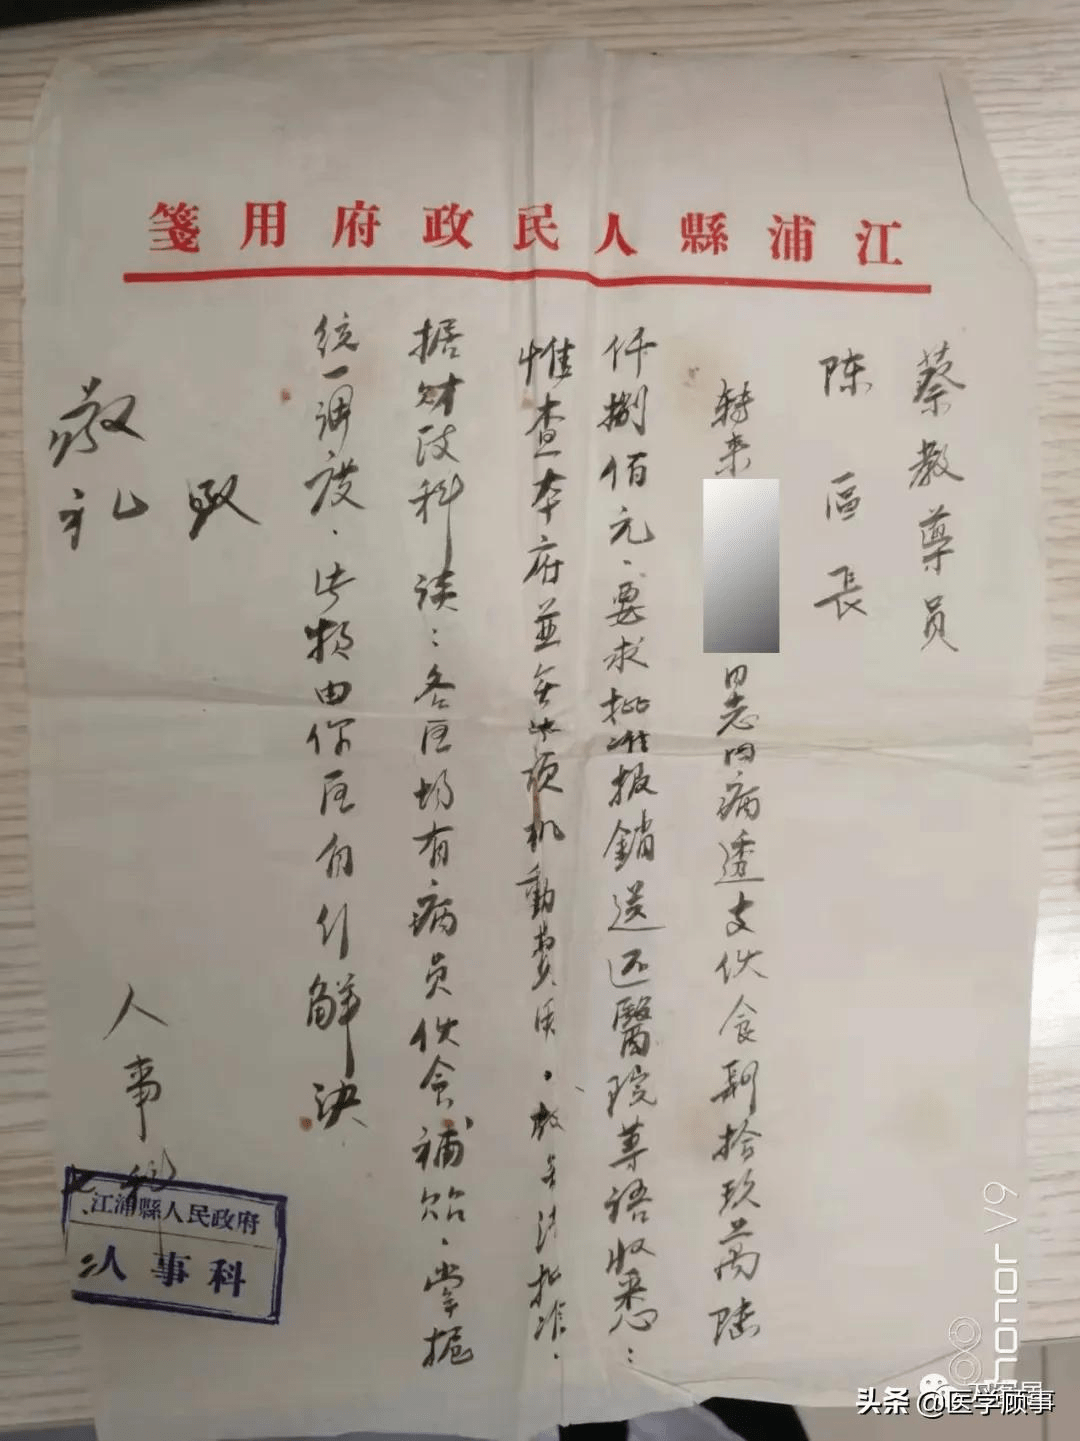 江浦縣人民政府用箋
蔡教導员
陈區長
轉来
同志因病透支伙食 拾玖萬陆
仟捌佰元、要求批准报銷送还醫院等语收悉：
惟查本府並无此项机動費用，故无法批准。
据财政科谈：各区均有病员伙食補贴、掌握
统一调度、此 由你区自行解决
致
敬礼
人事科
江浦縣人民政府
人事科
honor V9
头条 @医学顾事